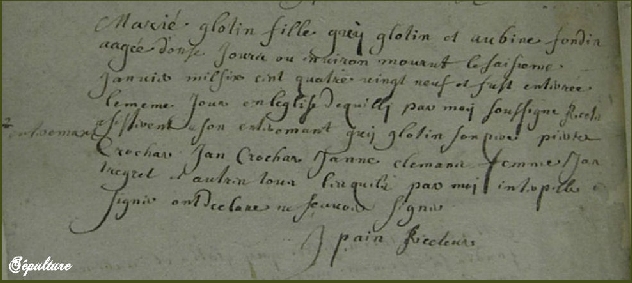 Marie glotin fille grég glotin et aubine fondin
aagée d'onse Jours ou environ mourut le saisieme
Janvier mil six cent quatre vingt neuf et fust enterree
le meme Jour en leglise de quilli par moy soussigne Recteur
assistivent a son enteremant grég glotin son pere pierre
enteremant
Crochar Jan Crochar Janne clemanz femme Jan
et autre tous lesquels par moi intepelle
signer ont declare ne scavoir signer
J pain Recteur
Sépulture